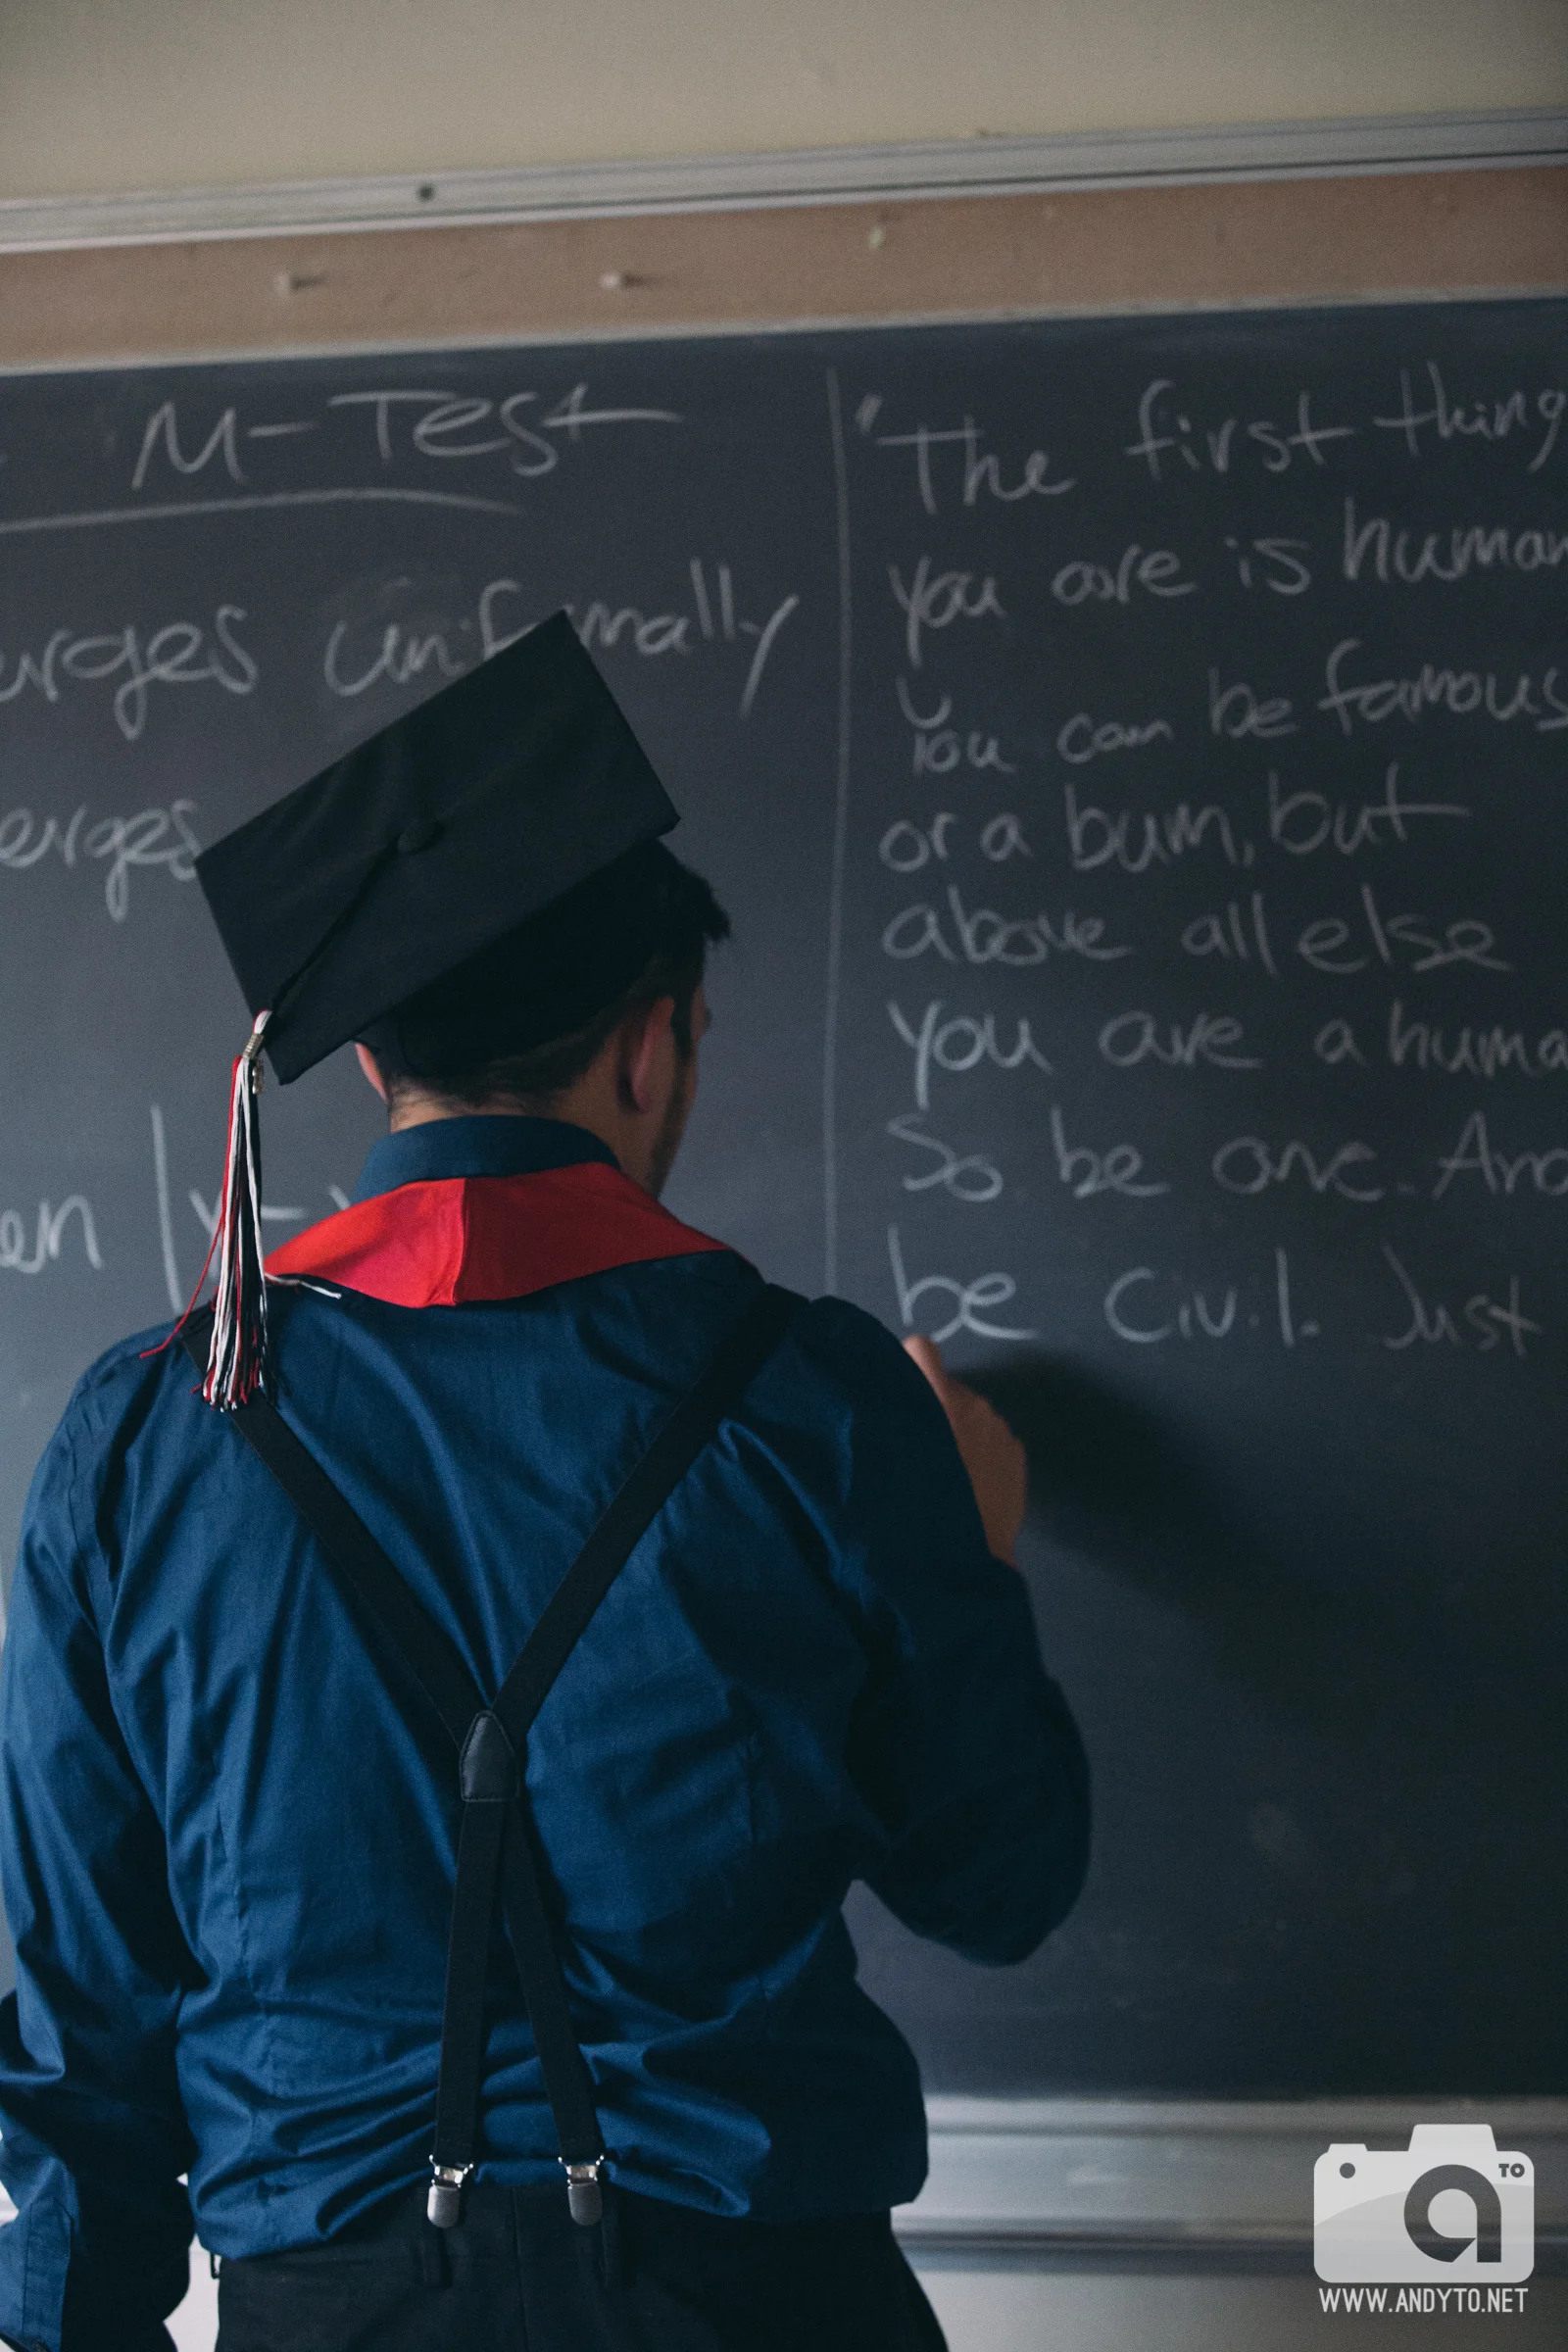 M-Test
erges uniformally
erges
en |x-
"The first thing
you are is human
You can be famous
or a bum, but
above all else
you are a huma
So be one. And
be Civil. Just
TO
a
WWW.ANDYTO.NET